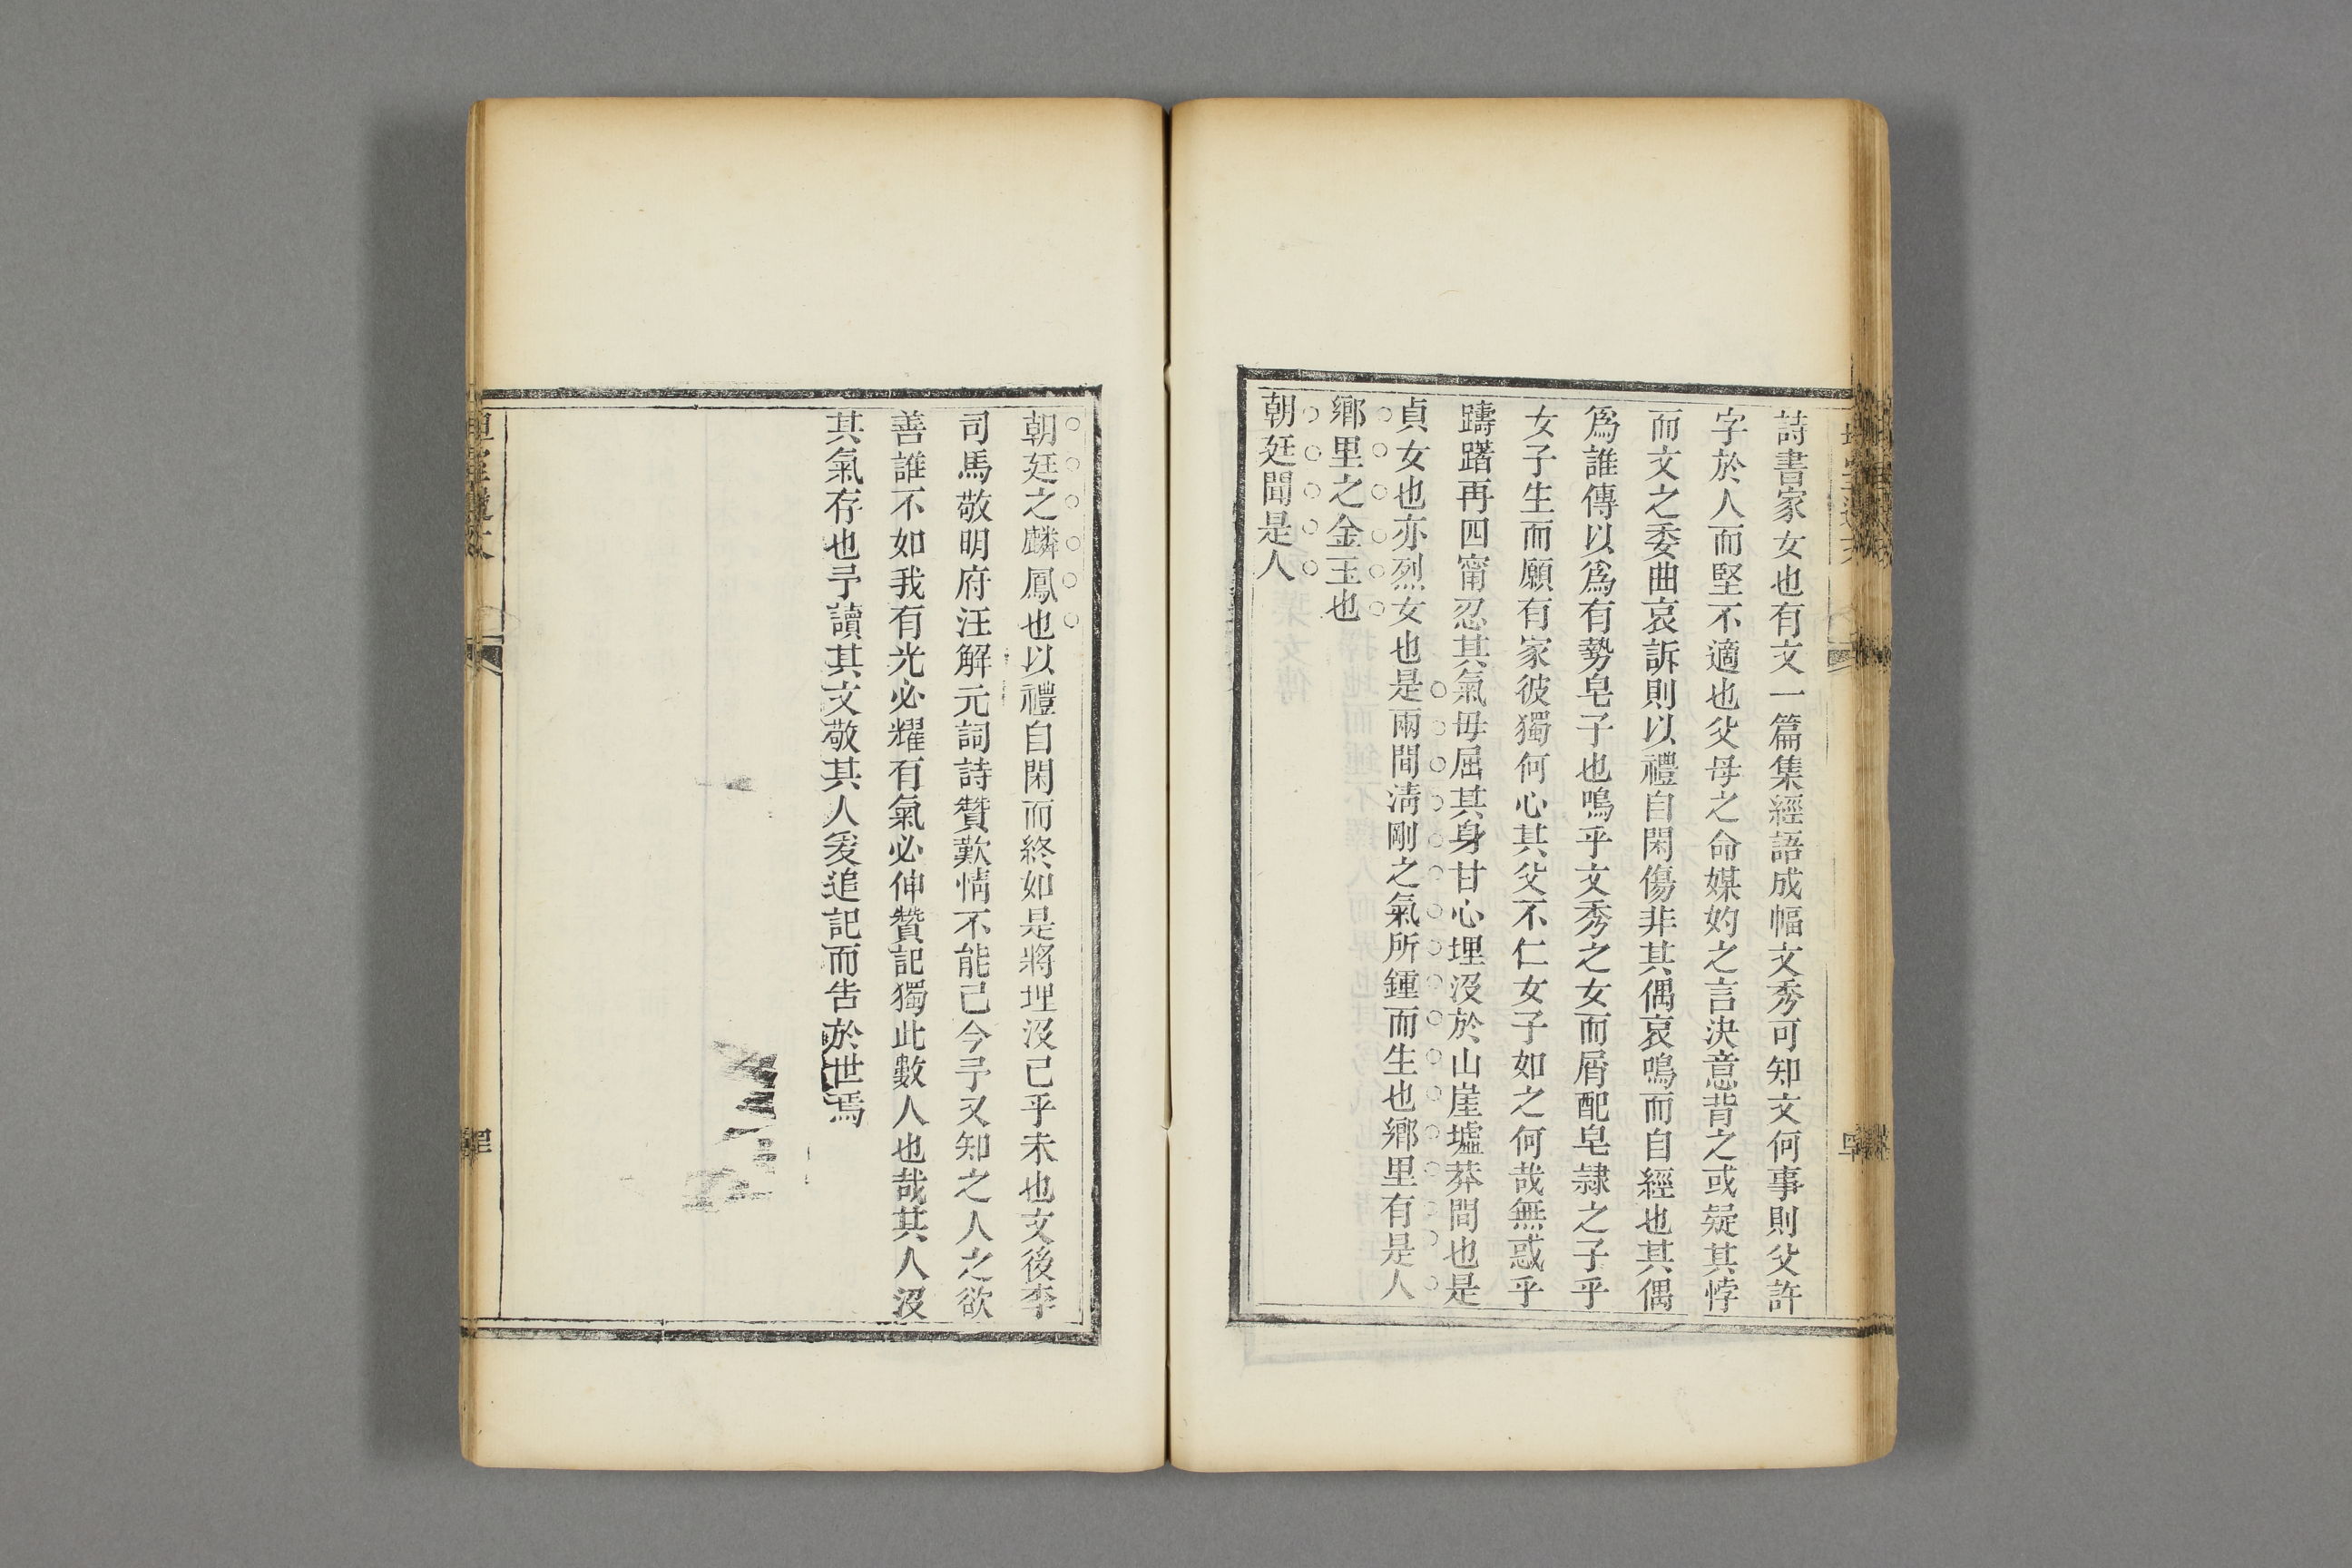 詩書家女也有文一篇集經語成幅文秀可知文何事則父許
字於人而堅不適也父母之命媒妁之言決意背之或疑其悖
而文之委曲哀訴則以禮自閑傷非其偶哀鳴而自經也其偶
爲誰傳以爲有勢皂子也嗚乎文秀之女而屑配皂隷之子乎
女子生而願有家彼獨何心其父不仁女子如之何哉無惑乎
躊躇再四甯忍其氣毋屈其身甘心埋沒於山崖墟莽間也是
貞女也亦烈女也是兩間淸剛之氣所鍾而生也鄕里有是人
鄕里之金玉也
朝廷聞是人
朝廷之麟鳳也以禮自閑而終如是將埋沒已乎未也文後李
司馬敬明府汪解元詞詩贊歎情不能已今予又知之人之欲
善誰不如我有光必耀有氣必伸贊記獨此數人也哉其人沒
其氣存也予讀其文敬其人爰追記而告於世焉